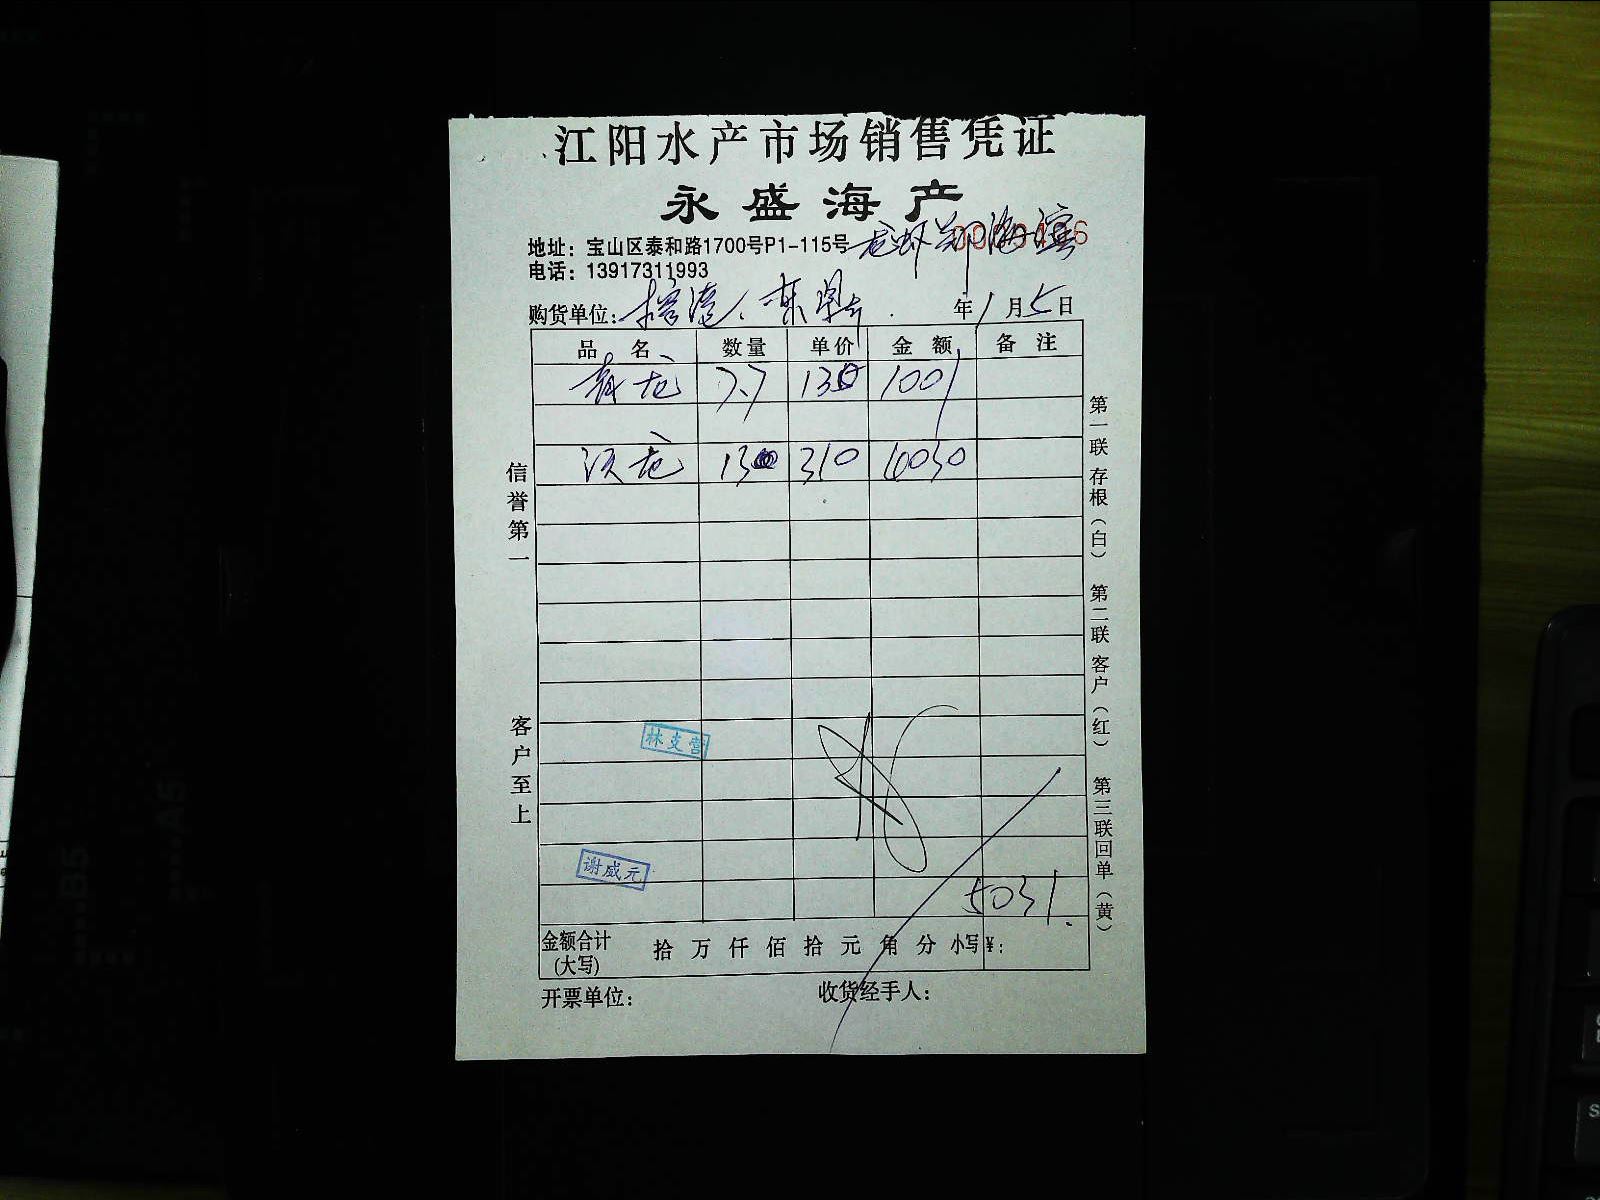 江阳水产市场销售凭证
永盛海产
地址：宝山区泰和路1700号P1-115号
电话：13917311993
购货单位： 年1月5日
品名 数量 单价 金额 备注
青龙 7.7 130 1001
沃龙 13 310 4030
信誉第一
客户至上
第一联 存根（白） 第二联 客户（红） 第三联 回单（黄）
林支营
谢成元
5031.
金额合计(大写) 拾 万 仟 佰 拾 元 角 分 小写¥：
开票单位： 收货经手人：